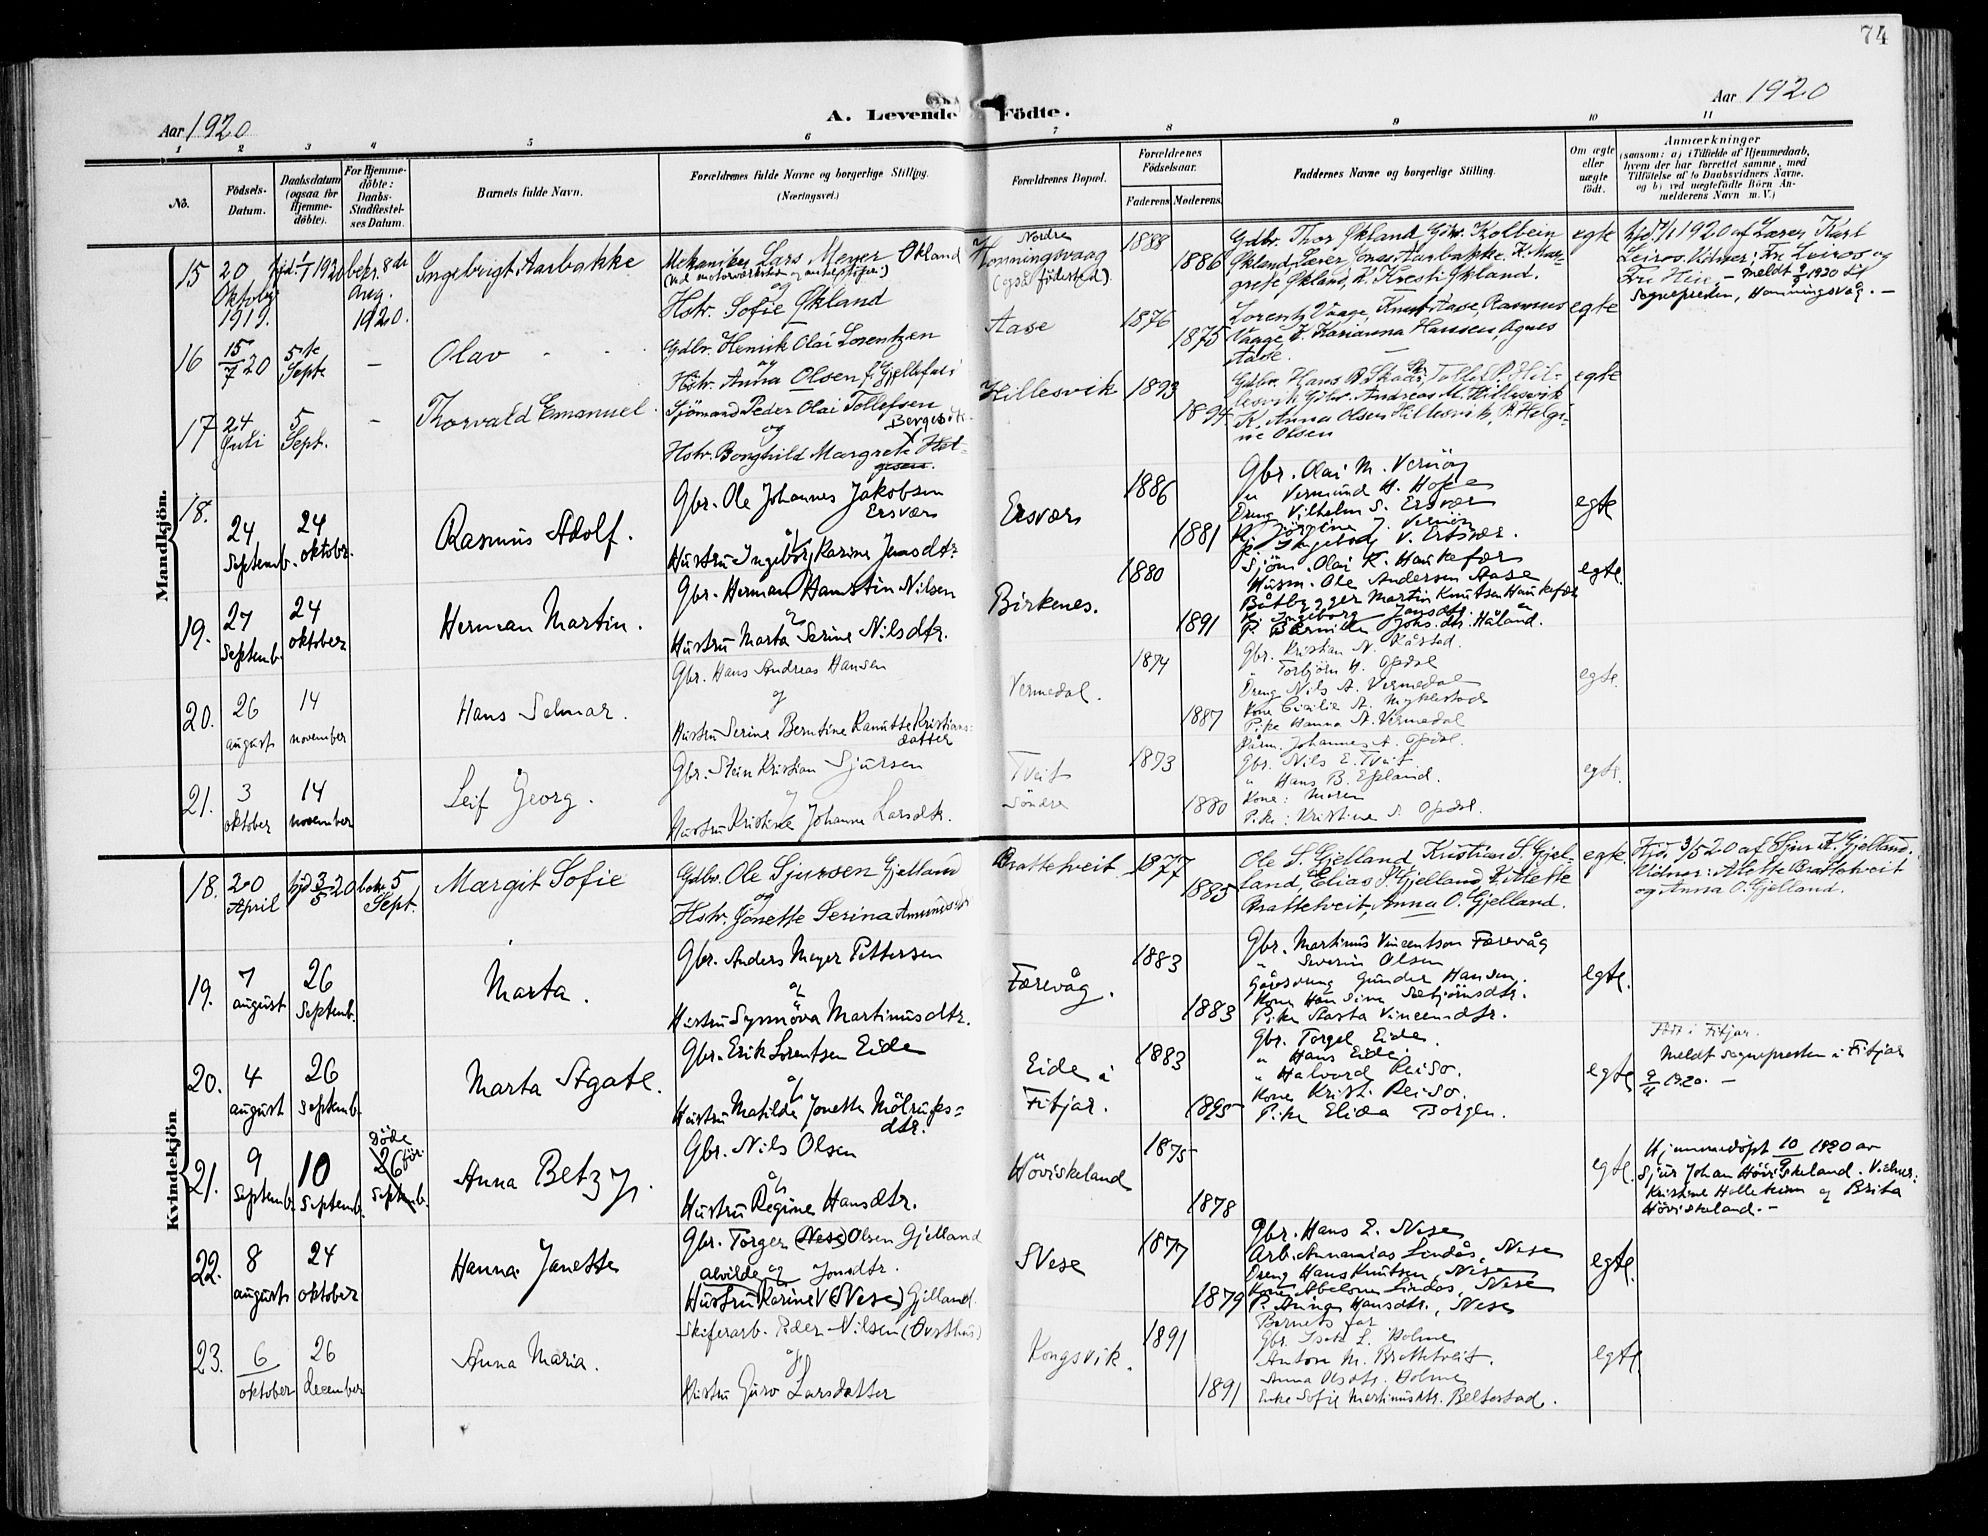 74
Aar 1920
A. Levende Födte.
Aar 1920
1 2 3 4 5 6 7 8 9 10 11
No.
Födsels-Datum.
Daabsdatum (ogsaa for Hjemme-döbte).
For Hjemme-döbte: Daabs-Stadfæstel-ses Datum.
Barnets fulde Navn.
Forældrenes fulde Navne og borgerlige Stilling. (Næringsvei.)
Forældrenes Bopæl.
Forældrenes Födselsaar.
Faderens Moderens
Faddernes Navne og borgerlige Stilling.
Om ægte eller uægte födt.
Anmærkninger
(saasom: a) i Tilfælde af Hjemmedaab, hvem der har forrettet samme, med Tilföielse af to Daabsvidners Navne, og b) ved uægtefödte Börn An-melderens Navn m. V.)
Mandkjön.
15 20 Oktober 1919. hjd 1/1 1920 bekr. 8de Aug. 1920.
Ingebrigt Aarbakke
Mekaniker Lars Meyer Økland
og
Hstr. Sofie Økland
Nordre Honningsvaag (også fødested)
1888 1886
Gdbr. Thor Økland, Gdbr. Kolbein
Økland, Lærer Jonas Aarbakke, K. Mar-
grete Økland, K. Kresti Økland.
egte
hjd 1/1 1920 af Lærer Karl
Leiros. Vidner, Fru Leiros og
Sognepresten, Honningsvåg. —
16 15/7 20 5te Septe —
Olav
Gdbr. Henrik Olai Lorentzen
og
Hstr. Anna Olsen
Aase
1876 1875
Lorentz Vaage, Knut Aase, Rasmus
Vaage, K. Karianna Hansen, Agnes
Aase.
egte
17 24 Juli 5 Sept. —
Thorvald Emanuel
Sjömand Peder Olai Tollefsen
og
Hstr. Borghild Margrete Hel-
gesen.
Hillesvik
1893 1894
lesvik, Gdbr. Andreas M. Hillesvik
K. Anna Olsen Hillesvik, P. Helgi-
ne Olsen
egte
18. 24 Septemb. 24 oktobr.
Rasmus Adolf.
Gbr. Ole Johannes Jakobsen
Ersvær
Hustru Ingeborg Karine Jensdtr.
Ersvær
1886 1881
Gbr. Olai M. Vernöy
" Vermund H. Hope
Dreng Vilhelm S. Ersvær
K. Jörgine J. Vernöy
P. Ingeborg V. Ersvær.
egte
19. 27 Septemb. 24 oktober
Herman Martin.
Gbr. Herman Hamstin Nilsen
og
Hustru Marta Serine Nilsdtr.
Birkenes.
1880 1891
Sjöm. Olai K. Haukefær
Husm. Ole Andersen Aase
Båtbygger Martin Knutsen Haukefær
K. Ingeborg Jansdtr.
P. Johs.dtr. Håland.
egte.
20. 26 august 14 november
Hans Selmar.
Gbr. Hans Andreas Hansen
og
Hustru Serine Berntine Kanutte Kristians-
datter
Vermedal.
1874 1887
Gbr. Kristian N. Kårstad
" Torbjörn H. Opdal
Dreng Nils A. Vermedal
Kone Cicilie A. Myklestad
Pike Hanna A. Vermedal
egte.
21. 3 oktober 14 november
Leif Georg.
Gbr. Stein Kristian Sjursen
Hustru Kristine Johanne Larsdtr.
Tveit Söndre
1873 1880
Johannes A. Opdal.
Gbr. Nils E. Tveit
" Hans B. Epland.
Kone: Moren
Pike: Kristine S. Opdal.
egte.
Kvindekjön
18. 20 April hjd 3/5 20 bekr 5 Sept.
Margit Sofie
Gdbr. Ole Sjursen Gjelland
og
Hstr. Jonette Serina
Brattetveit
1877 1885
Ole S. Gjelland, Kristian S. Gjel-
land, Elias Gjelland, K. Alette
Brattetveit, Anna O. Gjelland.
egte.
Hjd. 3/5 20 af Sjur Gjelland.
Vidner: Alette Brattetveit
og Anna O. Gjelland.
19. 7 august 26 Septemb.
Marta.
Gbr. Anders Meyer Pettersen
og
Hustru Synnöva Martinusdtr.
Færevåg.
1883 1883
Gbr. Martinus Vincentson Færevåg
" Severin Olsen
Gårdsdreng Gunder Hansen.
Kone Hansine Sæbjörnsdtr.
Pike Marta Vincensdtr.
egte.
20. 4 august 26 Septemb.
Marta Agate.
Gbr. Erik Lorentsen Eide
og
Hustru Matilde Jonette Mölrups-
dtr.
Eide i Fitjar.
1883 1895
Gbr. Torgel Eide.
" Hans Eide.
" Halvard Reisø.
Kone Krist. Reisø.
Pike Elida Borgen.
egte
Född i Fitjar.
Meldt Sognepresten i Fitjar
1920. —
21. 9 Septemb. 10 Septemb. Döde før 26 Septemb.
Anna Betzy.
Gbr. Nils Olsen
og
Hustru Regine Hansdtr.
Höviskeland
1875 1878
egte.
Hjemmedöpt 10/9 1920 av
Sjur Johan Höviskeland. Vidner:
Kristine Helleksen og Brita
Höviskeland. —
22. 8 august 24 oktober
Hanna Janette
Gbr. Torger (Nese) Olsen Gjelland
Alvilde og Jonsdtr.
Hustru Karine (Nese) Gjelland.
Nese
1877 1879
Gbr. Hans E. Nese
Arb. Annanias Lindås, Nese
Dreng Hans Knutsen, Nese
Kone Abelone Lindås, Nese
P. Anna Hansdtr., Nese
egte.
23. 6 oktober 26 december
Anna Maria.
Skiferarb. Peder Nilsen (Øvsthus)
og
Hustru Guro Larsdatter
Kongsvik.
1891 1891
Barnets far
Gbr. Isak L. Holme
Anton M. Brattetveit.
Anna Olsdtr. Holme
Enke Sofie Martinusdtr. Beltestad.
egte.